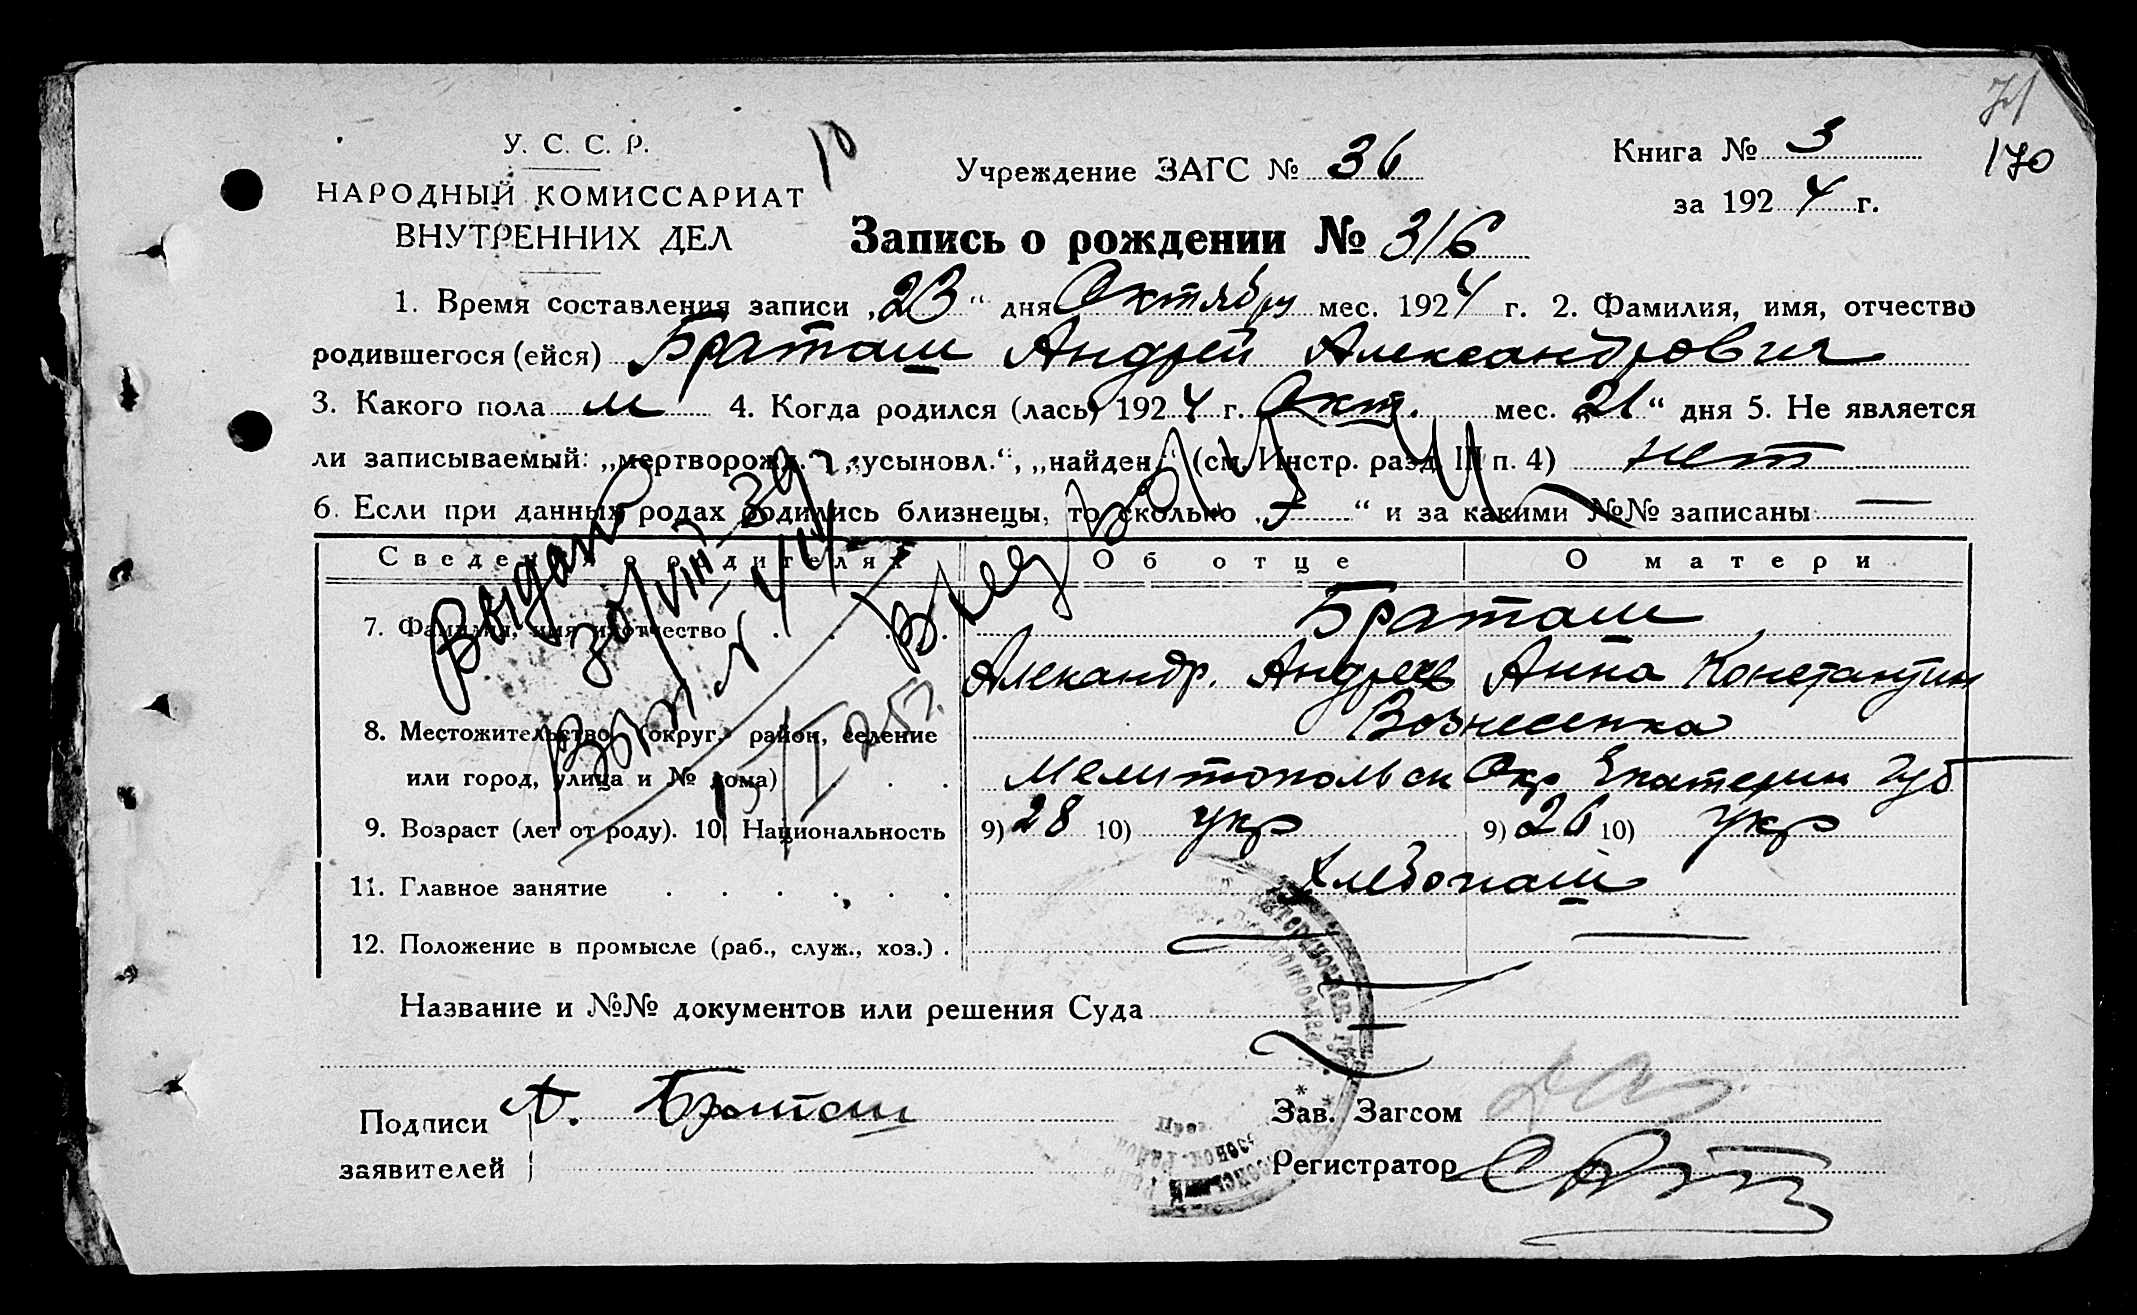 71
170
У. С. С. Р.
НАРОДНЫЙ КОМИССАРИАТ
ВНУТРЕННИХ ДЕЛ
Учреждение ЗАГС № 36
Книга № 3
за 1924 г.
Запись о рождении № 316
1. Время составления записи „23“ дня Октября мес. 1924 г. 2. Фамилия, имя, отчество
родившегося (ейся) Браташ Андрей Александрович
3. Какого пола м 4. Когда родился (лась) 1924 г. Окт. мес. „21“ дня 5. Не является
ли записываемый: „мертворожд.“, „усыновл.“, „найден.“ (см. Инстр. разд. III п. 4) нет
6. Если при данных родах родились близнецы, то сколько „ “ и за какими №№ записаны —
Сведения о родителях Об отце О матери
7. Фамилия, имя и отчество Браташ
Алекандр. Андреев Анна Константин
8. Местожительство (округ, район, селение Вознесенка
или город, улица и № дома) Мелитопольск Окр Екатерин губ
9. Возраст (лет от роду). 10. Национальность 9) 28 10) укр 9) 26 10) укр
11. Главное занятие Хлебопаш
12. Положение в промысле (раб., служ., хоз.) — —
Название и №№ документов или решения Суда —
Подписи А. Браташ
заявителей
Зав. Загсом
Регистратор
Выдано
30/VIII-39